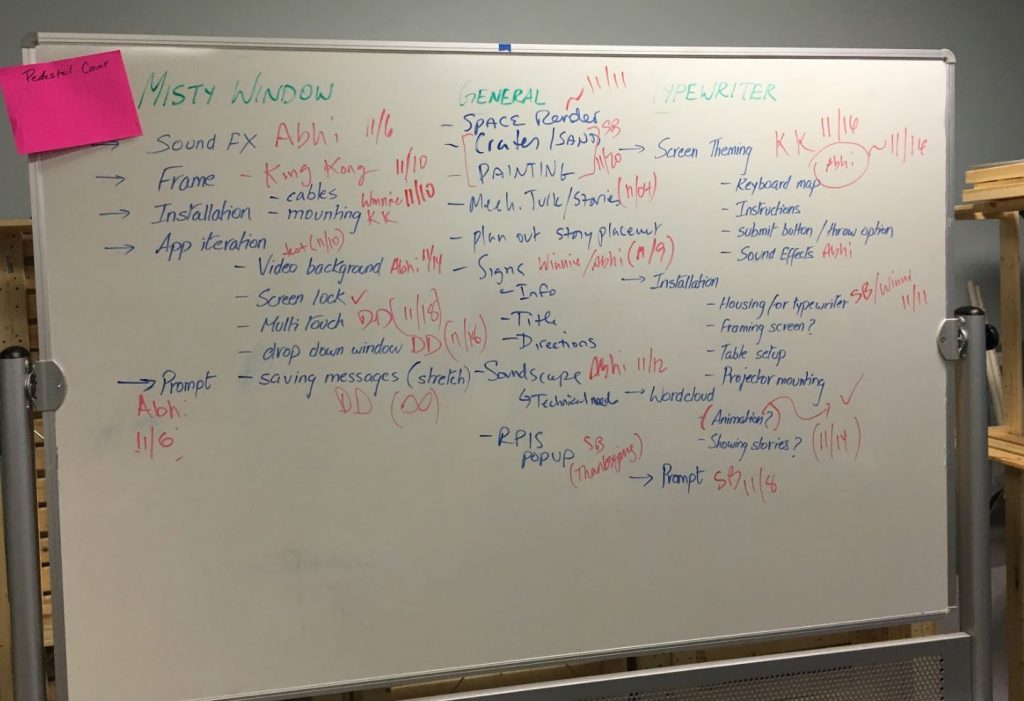 Pedestal Count
MISTY WINDOW
→ Sound FX Abhi 11/6
→ Frame - King Kong 11/10
- cables Winnie 11/10
→ Installation - mounting KK
→ App iteration
test (11/10)
- Video background Abhi 11/14
- Screen lock ✓
- Multi touch DD (11/18)
- drop down window DD (11/18)
- saving messages (stretch)
DD (∞)
→ Prompt
Abhi
11/6
GENERAL ~ 11/11
- SPACE Render
- Crates/SAND SB
- PAINTING 11/20
- Mech. Turk/Stories (11/04)
- plan out story placement
- Signs Winnie/Abhi (11/9)
- Info
- Title
- Directions
- Soundscape Abhi 11/12
↳ Technical need
- RPIS
POPUP SB
(Thanksgiving)
TYPEWRITER
→ Screen Theming KK 11/16
Abhi ~ 11/14
- Keyboard map
- Instructions
- submit button / throw option
- Sound Effects Abhi
→ Installation
- Housing for typewriter SB/Winnie
11/11
- Framing screen?
- Table setup
- Projector mounting
→ Wordcloud ✓
(Animation?)
- Showing stories? (11/14)
→ Prompt SB 11/8